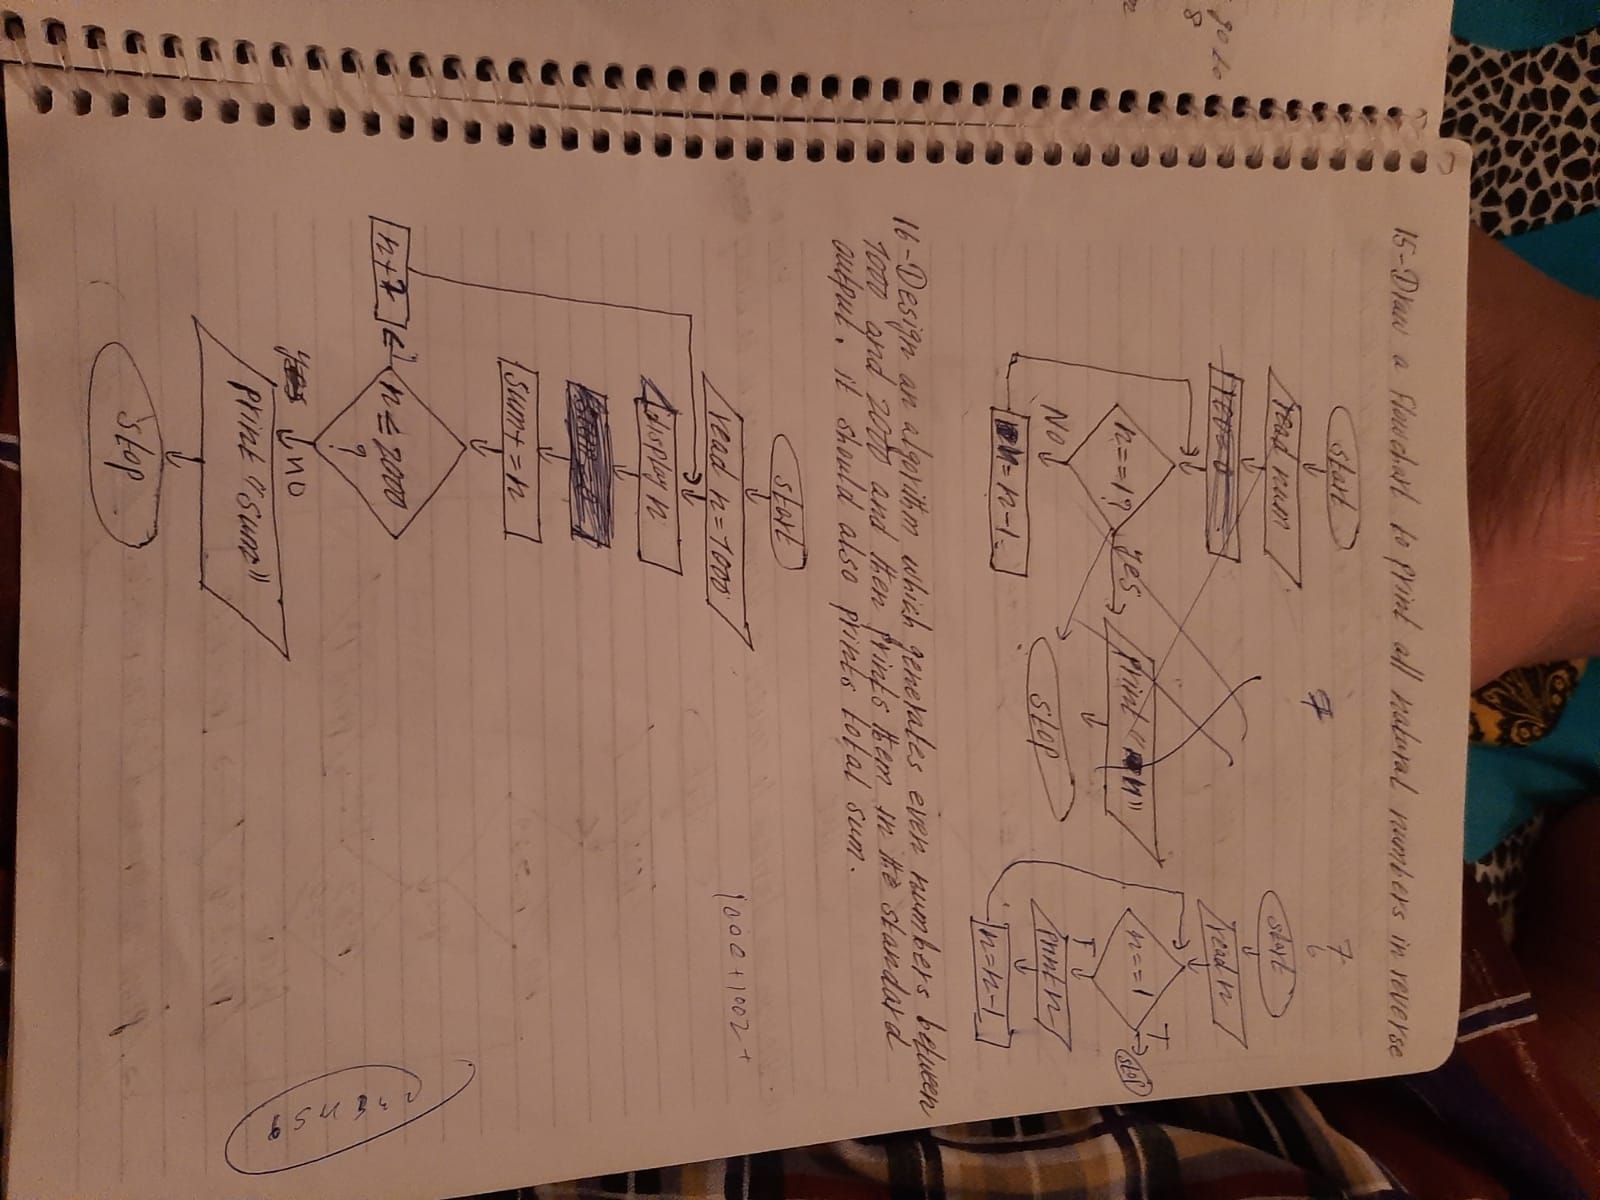 15-Draw a flowchart to print all natural numbers in reverse
start
read num
n==1?
yes
print "n"
No
n=n-1
stop
7
6
start
read n
n==1
T
stop
print n
n=n-1
16-Design an algorithm which generates even numbers between
1000 and 2000 and then prints them in the standard
output. it should also prints total sum.
start
read n=1000
display n
sum+=n
n≤2000
?
n+2
yes
no
print "sum"
stop
1000+1002+
go to
8